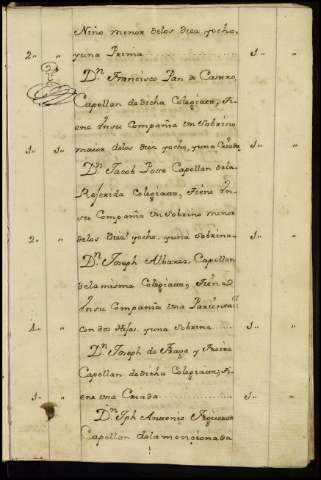 Niño menor delos diez yocho,
2,, ,, yuna Prima 1,, ,,
Dn. Francisco Pan a Castro
Capellan de dicha Colegiata, tie
ne Insu Compañia un Sobrino
1,, 1,, maior delos diez yocho, yuna 1,, ,,
Dn. Jacob Posse Capellan dela
Referida Colegiata, tiene In
su Compañia Un Sobrino menor
2,, ,, delos diez yocho yuna Sobrina 1,, ,,
Dn. Joseph Albarez, Capellan
dela misma Colegiata, tiene
Insu Compañia una Parienta
1,, ,, con dos Hijas yuna Sobrina 1,, ,,
Dn. Joseph de Raxo y Freire
Capellan de dicha Colegiata, ti
1,, ,, ene una Criada 1,, ,,
Dn. Jph Antonio
Capellan dela mencionada